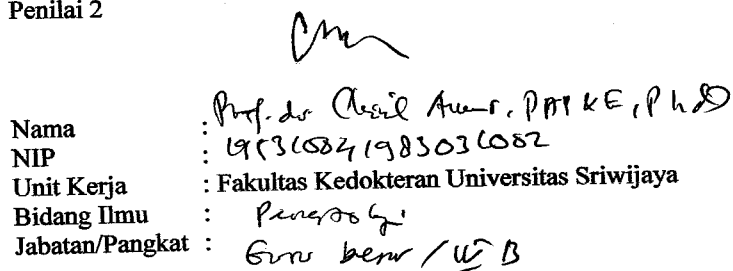 Penilai 2
Nama : Prof. dr Chairil Anwar, DAP&E, PhD
NIP : 195310041983031002
Unit Kerja : Fakultas Kedokteran Universitas Sriwijaya
Bidang Ilmu :
Jabatan/Pangkat : Guru besar / IV B